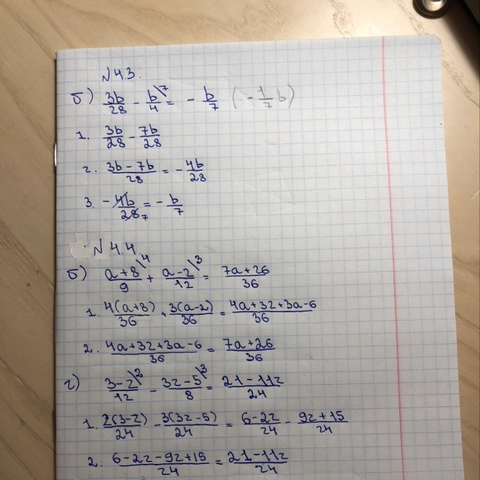 №43.
б) 3b/28 - b/4 \7 = - b/7 (-1/7 b)
1. 3b/28 - 7b/28
2. 3b-7b/28 = - 4b/28
3. - 4b/28 7 = - b/7
№44
б) a+8/9 \4 + a-2/12 \3 = 7a+26/36
1. 4(a+8)/36 + 3(a-2)/36 = 4a+32+3a-6/36
2. 4a+32+3a-6/36 = 7a+26/36
г) 3-z/12 \2 - 3z-5/8 \3 = 21-11z/24
1. 2(3-z)/24 - 3(3z-5)/24 = 6-2z/24 - 9z+15/24
2. 6-2z-9z+15/24 = 21-11z/24